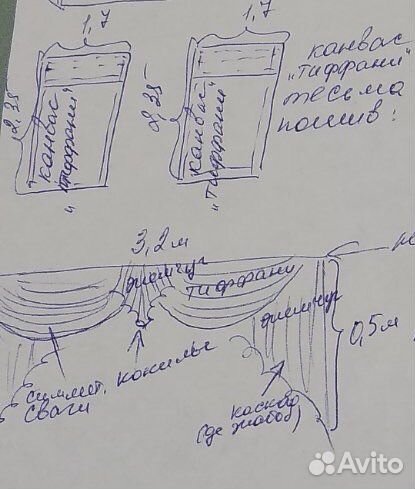 1,7
1,7
2,35
канвас
"тиффани"
2,35
канвас
"тиффани"
канвас
"тиффани"
тесьма
пошив:
3,2 м
жемчуг
тиффани
жемчуг
0,5 м
симмет.
сваги
кокилье
каскад
(где жабо)
Avito